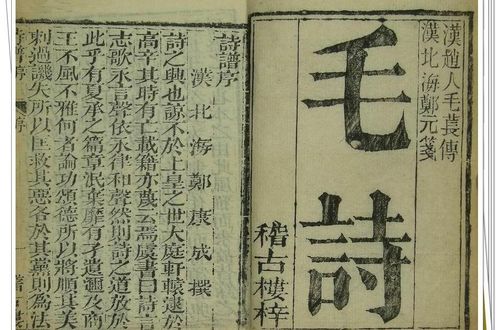 漢趙人毛萇傳
漢北海鄭元箋
毛詩
稽古樓梓
詩譜序
漢北海鄭康成撰
詩之興也諒不於上皇之世大庭軒轅逮於
高辛其時有亡載籍亦蔑云焉虞書曰詩言
志歌永言聲依永律和聲然則詩之道放於
此乎有夏承之篇章泯棄靡有孑遺邇及商
王不風不雅何者論功頌德所以將順其美
刺過譏失所以匡救其惡各於其黨則為法
詩譜序 序